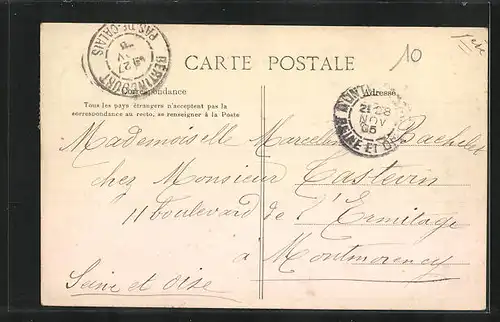 10
CARTE POSTALE
BERTINCOURT
PAS-DE-CALAIS
27
Correspondance
Adresse
Tous les pays étrangers n'acceptent pas la
correspondance au recto, se renseigner à la Poste
28
NOV
SEINE ET OISE
Mademoiselle Marcelline Bachelet
chez Monsieur Castevin
11 boulevard de l'Ermitage
à Montmorency
Seine et Oise